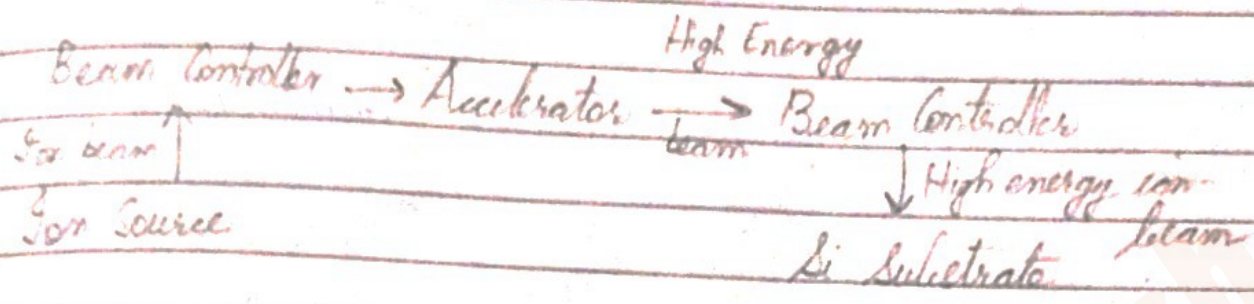 High Energy
Beam Controller → Accelerator → Beam Controller
beam
Ion beam
High energy ion-
beam
Ion Source
Si Substrate